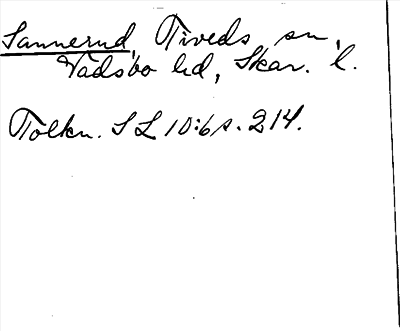 Sannerud, Tiveds sn,
Vadsbo hd, Skar. l.
Tolkn. SL 10:6 s. 214.